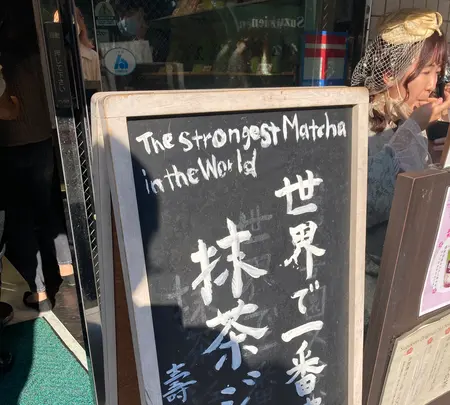 The strongest Matcha
in the World
世界で一番
抹茶ジ
壽
Suzukien